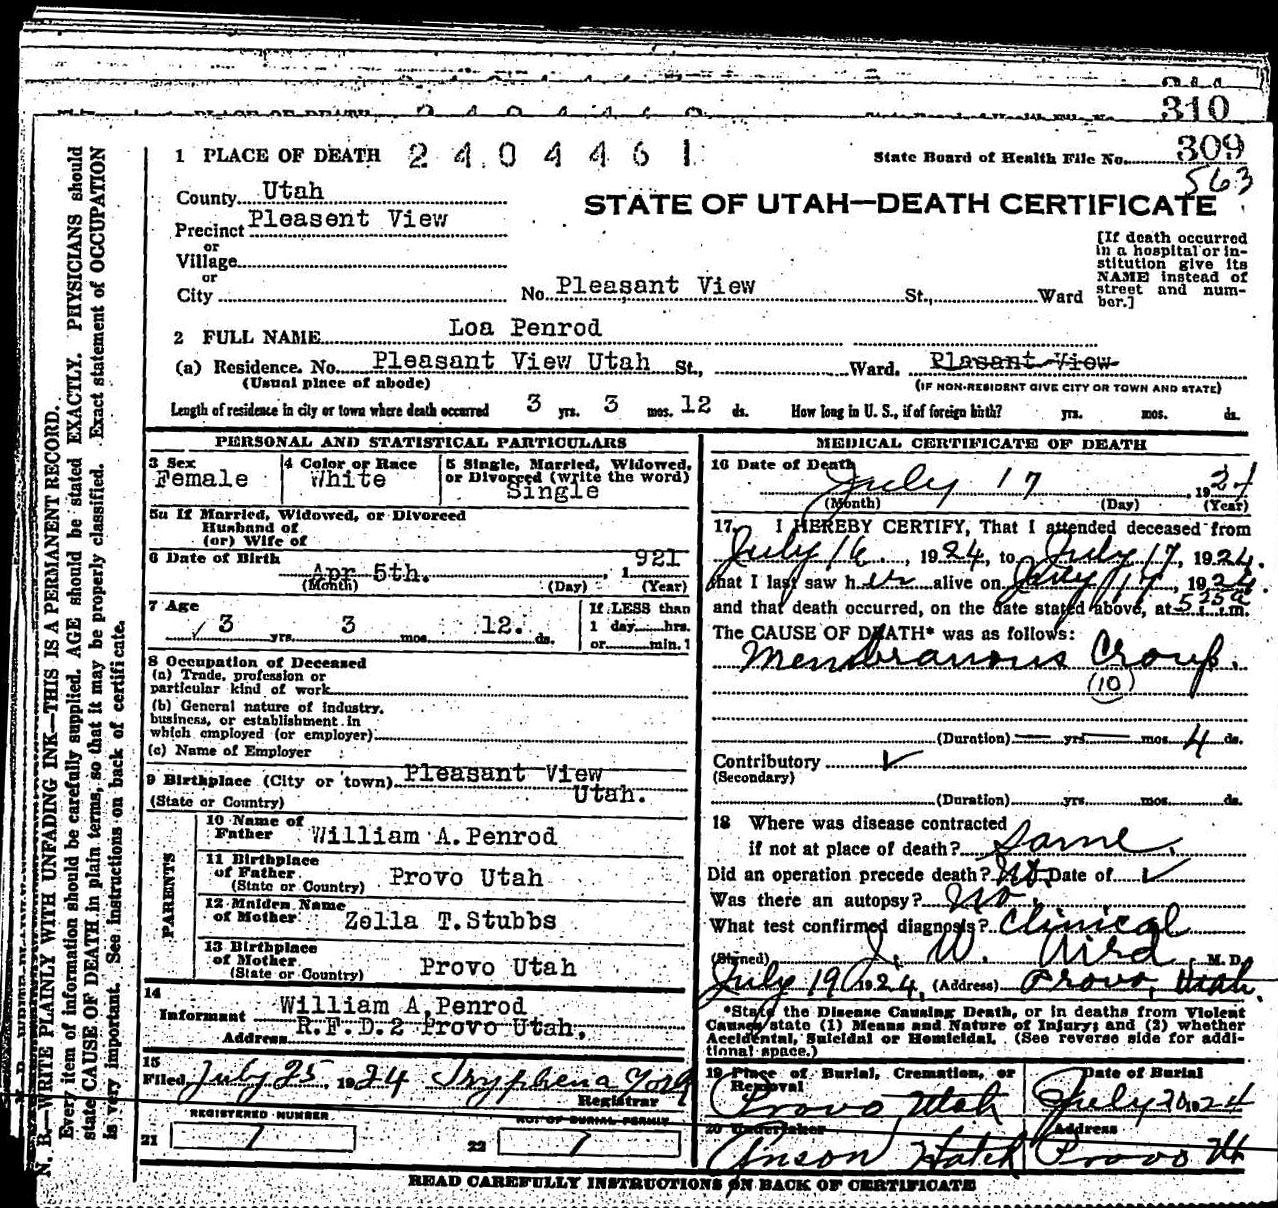 310
1 PLACE OF DEATH 2404461 State Board of Health File No. 309
563
County Utah
STATE OF UTAH—DEATH CERTIFICATE
Precinct Pleasent View
or
Village
or
City No. Pleasant View St., Ward
[If death occurred
in a hospital or in-
stitution give its
NAME instead of
street and num-
ber.]
2 FULL NAME Loa Penrod
(a) Residence. No. Pleasant View Utah St., Ward. Plasant View
(Usual place of abode) (IF NON-RESIDENT GIVE CITY OR TOWN AND STATE)
Length of residence in city or town where death occurred 3 yrs. 3 mos. 12 ds. How long in U. S., if of foreign birth? yrs. mos. ds.
PERSONAL AND STATISTICAL PARTICULARS
3 Sex Female
4 Color or Race White
5 Single, Married, Widowed,
or Divorced (write the word)
Single
5a If Married, Widowed, or Divorced
Husband of
(or) Wife of
6 Date of Birth Apr 5th. , 1921
(Month) (Day) (Year)
7 Age 3 yrs. 3 mos. 12. ds.
If LESS than
1 day hrs.
or min.
8 Occupation of Deceased
(a) Trade, profession or
particular kind of work
(b) General nature of industry,
business, or establishment in
which employed (or employer)
(c) Name of Employer
9 Birthplace (City or town) Pleasant View
(State or Country) Utah.
PARENTS
10 Name of
Father William A. Penrod
11 Birthplace
of Father
(State or Country) Provo Utah
12 Maiden Name
of Mother Zella T. Stubbs
13 Birthplace
of Mother
(State or Country) Provo Utah
14
Informant William A. Penrod
Address R.F.D.2 Provo Utah,
15
Filed July 25 1924 Tryphena York
Registrar
REGISTERED NUMBER
21 7
NO. OF BURIAL PERMIT
22 7
MEDICAL CERTIFICATE OF DEATH
16 Date of Death July 17, 1924
(Month) (Day) (Year)
17. I HEREBY CERTIFY, That I attended deceased from
July 16, 1924, to July 17, 1924.
that I last saw her alive on July 17, 1924
and that death occurred, on the date stated above, at m.
The CAUSE OF DEATH* was as follows:
Membranous Croup.
(10)
(Duration) — yrs. — mos. 4 ds.
Contributory
(Secondary)
(Duration) yrs. mos. ds.
18 Where was disease contracted
if not at place of death? Same.
Did an operation precede death? No. Date of
Was there an autopsy? No.
What test confirmed diagnosis? Clinical
(Signed) J. W. Aird, M. D.
July 19, 1924, (Address) Provo, Utah.
*State the Disease Causing Death, or in deaths from Violent
Causes, state (1) Means and Nature of Injury; and (2) whether
Accidental, Suicidal or Homicidal. (See reverse side for addi-
tional space.)
19 Place of Burial, Cremation, or
Removal
Provo Utah
Date of Burial
July 20 1924
20 Undertaker
Anson Hatch
Address
Provo Ut
READ CAREFULLY INSTRUCTIONS ON BACK OF CERTIFICATE
N. B.—WRITE PLAINLY WITH UNFADING INK—THIS IS A PERMANENT RECORD.
Every item of information should be carefully supplied. AGE should be stated EXACTLY. PHYSICIANS should
state CAUSE OF DEATH in plain terms, so that it may be properly classified. Exact statement of OCCUPATION
is very important. See instructions on back of certificate.